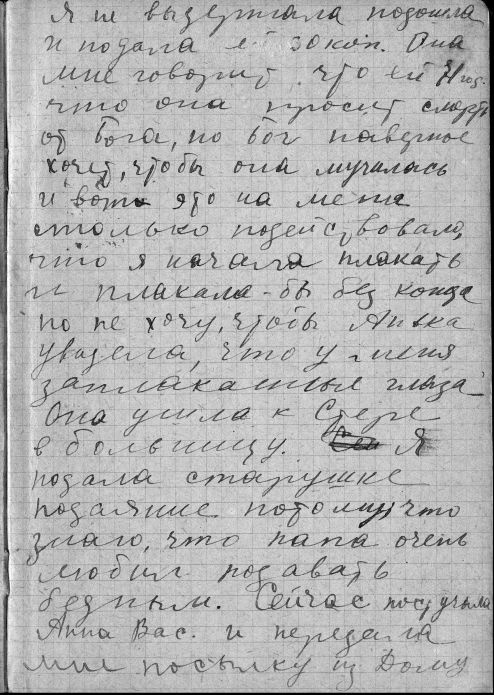 я не выдержала подошла
и подала ей закон. Она
мне говорит что ей
что она просит смерть
от Бога, но бог наверное
хочет, чтобы она мучилась
и вот это на меня
столько подействовало,
что я начала плакать
и плакала-бы без конца
но не хочу, чтобы Анька
увидела, что у меня
заплаканные глаза
Она ушла к Стере
в больницу. Я
подала старушке
подаяние потому, что
знаю, что папа очень
любил подавать
бедным. Сейчас постучала
Анна Вас. и передала
мне посылку из Дому